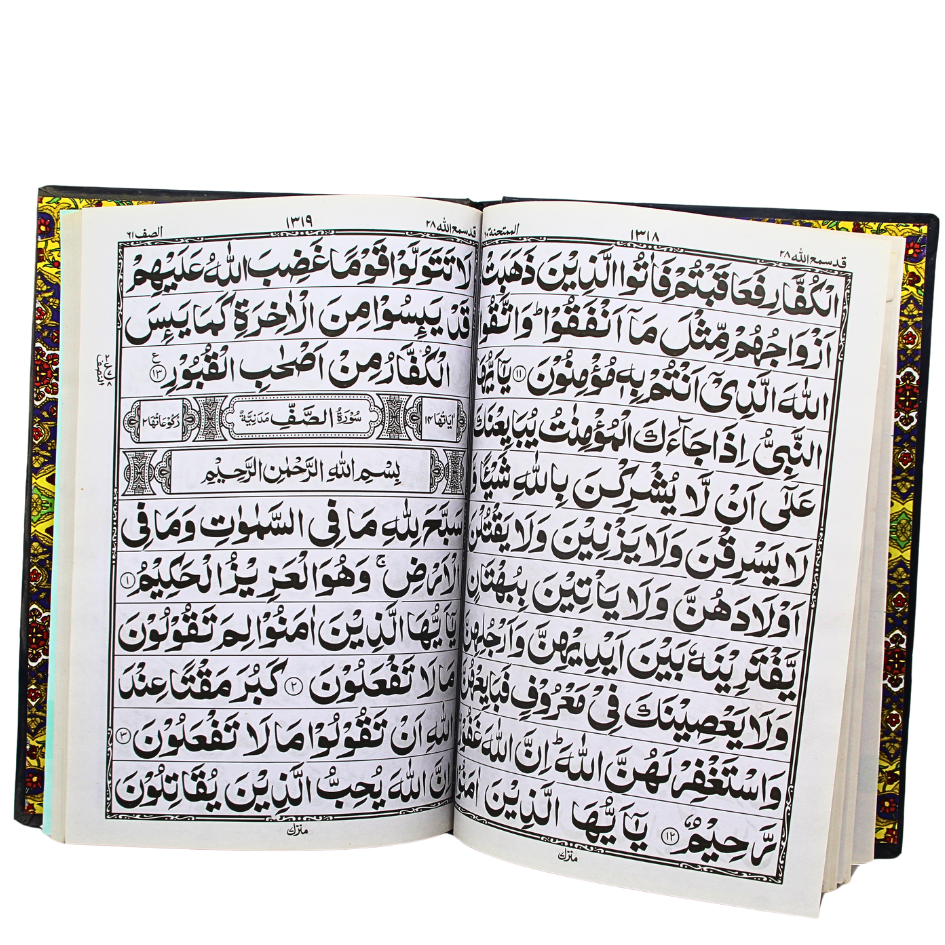 الممتحنة ١٣١٨ قد سمع الله ٢٨
الْكُفَّارِ فَعَاقَبْتُمْ فَاٰتُوا الَّذِيْنَ ذَهَبَتْ
اَزْوَاجُهُمْ مِّثْلَ مَاۤ اَنْفَقُوْا ؕ وَاتَّقُوا
اللّٰهَ الَّذِيْۤ اَنْتُمْ بِهٖ مُؤْمِنُوْنَ ۝۱۱ يٰۤاَيُّهَا
النَّبِيُّ اِذَا جَآءَكَ الْمُؤْمِنٰتُ يُبَايِعْنَكَ
عَلٰۤى اَنْ لَّا يُشْرِكْنَ بِاللّٰهِ شَيْـًٔا وَّ
لَا يَسْرِقْنَ وَلَا يَزْنِيْنَ وَلَا يَقْتُلْنَ
اَوْلَادَهُنَّ وَلَا يَاْتِيْنَ بِبُهْتَانٍ
يَّفْتَرِيْنَهٗ بَيْنَ اَيْدِيْهِنَّ وَاَرْجُلِهِنَّ
وَلَا يَعْصِيْنَكَ فِيْ مَعْرُوْفٍ فَبَايِعْهُنَّ
وَاسْتَغْفِرْ لَهُنَّ اللّٰهَ ؕ اِنَّ اللّٰهَ غَفُوْرٌ
رَّحِيْمٌ ۝۱۲ يٰۤاَيُّهَا الَّذِيْنَ اٰمَنُوْا
منزل
الصف ٦١ ١٣١٩ قد سمع الله ٢٨
لَا تَتَوَلَّوْا قَوْمًا غَضِبَ اللّٰهُ عَلَيْهِمْ
قَدْ يَىِٕسُوْا مِنَ الْاٰخِرَةِ كَمَا يَىِٕسَ
الْكُفَّارُ مِنْ اَصْحٰبِ الْقُبُوْرِ ۝۱۳
اٰيَاتُهَا ١٤ سُوْرَةُ الصَّفِّ مَدَنِيَّةٌ رُكُوْعَاتُهَا ٢
بِسْمِ اللّٰهِ الرَّحْمٰنِ الرَّحِيْمِ
سَبَّحَ لِلّٰهِ مَا فِي السَّمٰوٰتِ وَمَا فِي
الْاَرْضِ ۚ وَهُوَ الْعَزِيْزُ الْحَكِيْمُ ۝۱
يٰۤاَيُّهَا الَّذِيْنَ اٰمَنُوْا لِمَ تَقُوْلُوْنَ
مَا لَا تَفْعَلُوْنَ ۝۲ كَبُرَ مَقْتًا عِنْدَ
اللّٰهِ اَنْ تَقُوْلُوْا مَا لَا تَفْعَلُوْنَ ۝۳
اِنَّ اللّٰهَ يُحِبُّ الَّذِيْنَ يُقَاتِلُوْنَ
منزل